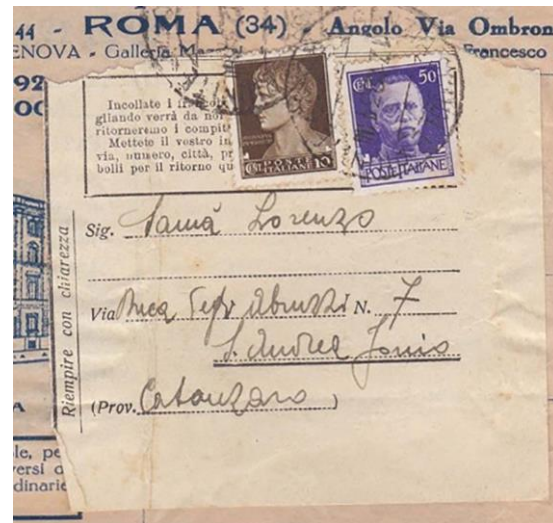 44 - ROMA (34) - Angolo Via Ombron
ENOVA - Galleria Francesco
92
Incollate i
gliando verrà da noi
ritorneremo i compit
Mettete il vostro in
via, numero, città, pr
bolli per il ritorno qu
POSTE ITALIANE
CENT 10
CENT 50
POSTE ITALIANE
Riempire con chiarezza
Sig. Samà Lorenzo
Via Duca Abruzzi N. 7
S. Andrea Jonio
(Prov. Catanzaro)
A
le, pe
versi
dinarie